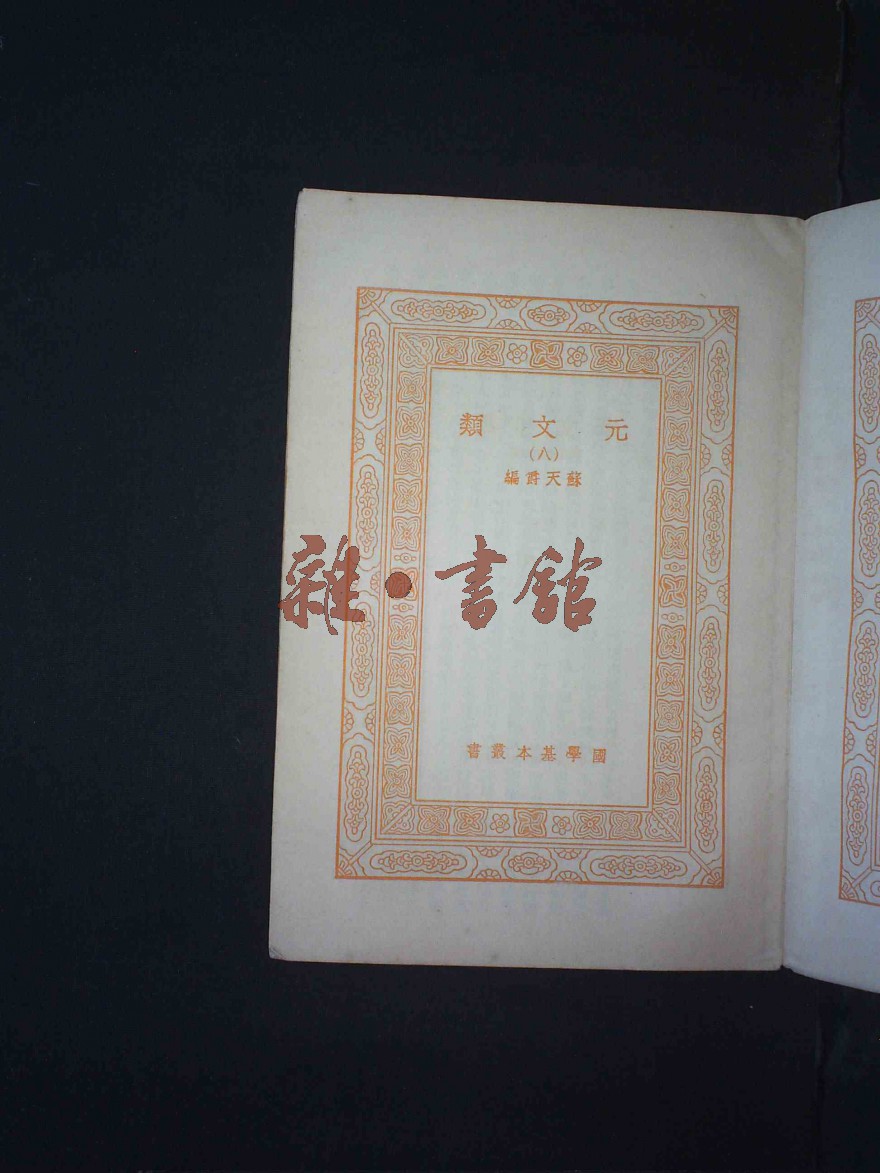 元文類
(八)
蘇天爵編
雜·書館
國學基本叢書